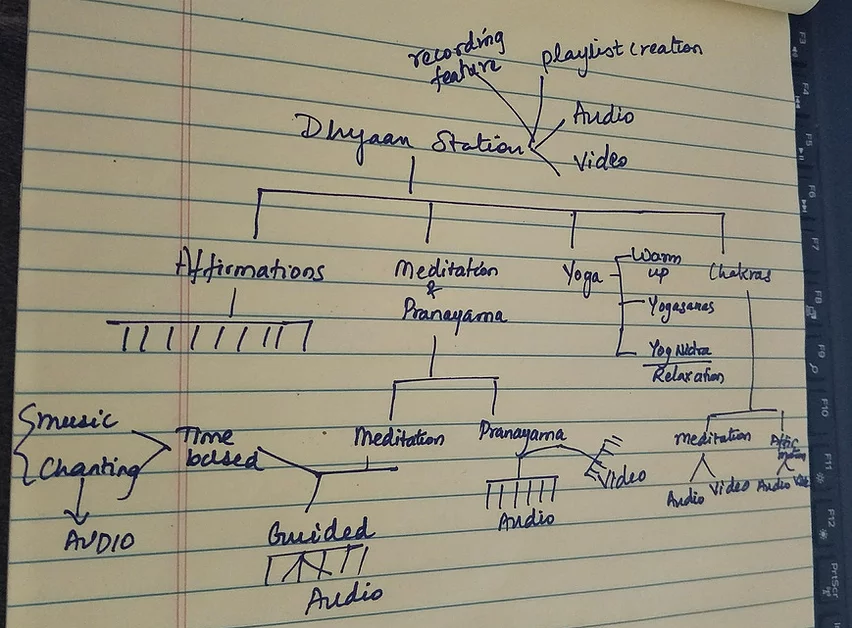 recording
feature
playlist creation
Dhyaan Station
Audio
Video
Affirmations
Meditation
&
Pranayama
Yoga
Warm
up
Yogasanas
Yog Nidra
Relaxation
Chakras
music
Chanting
AUDIO
Time
based
Meditation
Guided
Audio
Pranayama
Audio
Video
meditation
Audio Video
Audio
F3
F4
F5
F6
F7
F8
F9
F10
F11
F12
PrtScr